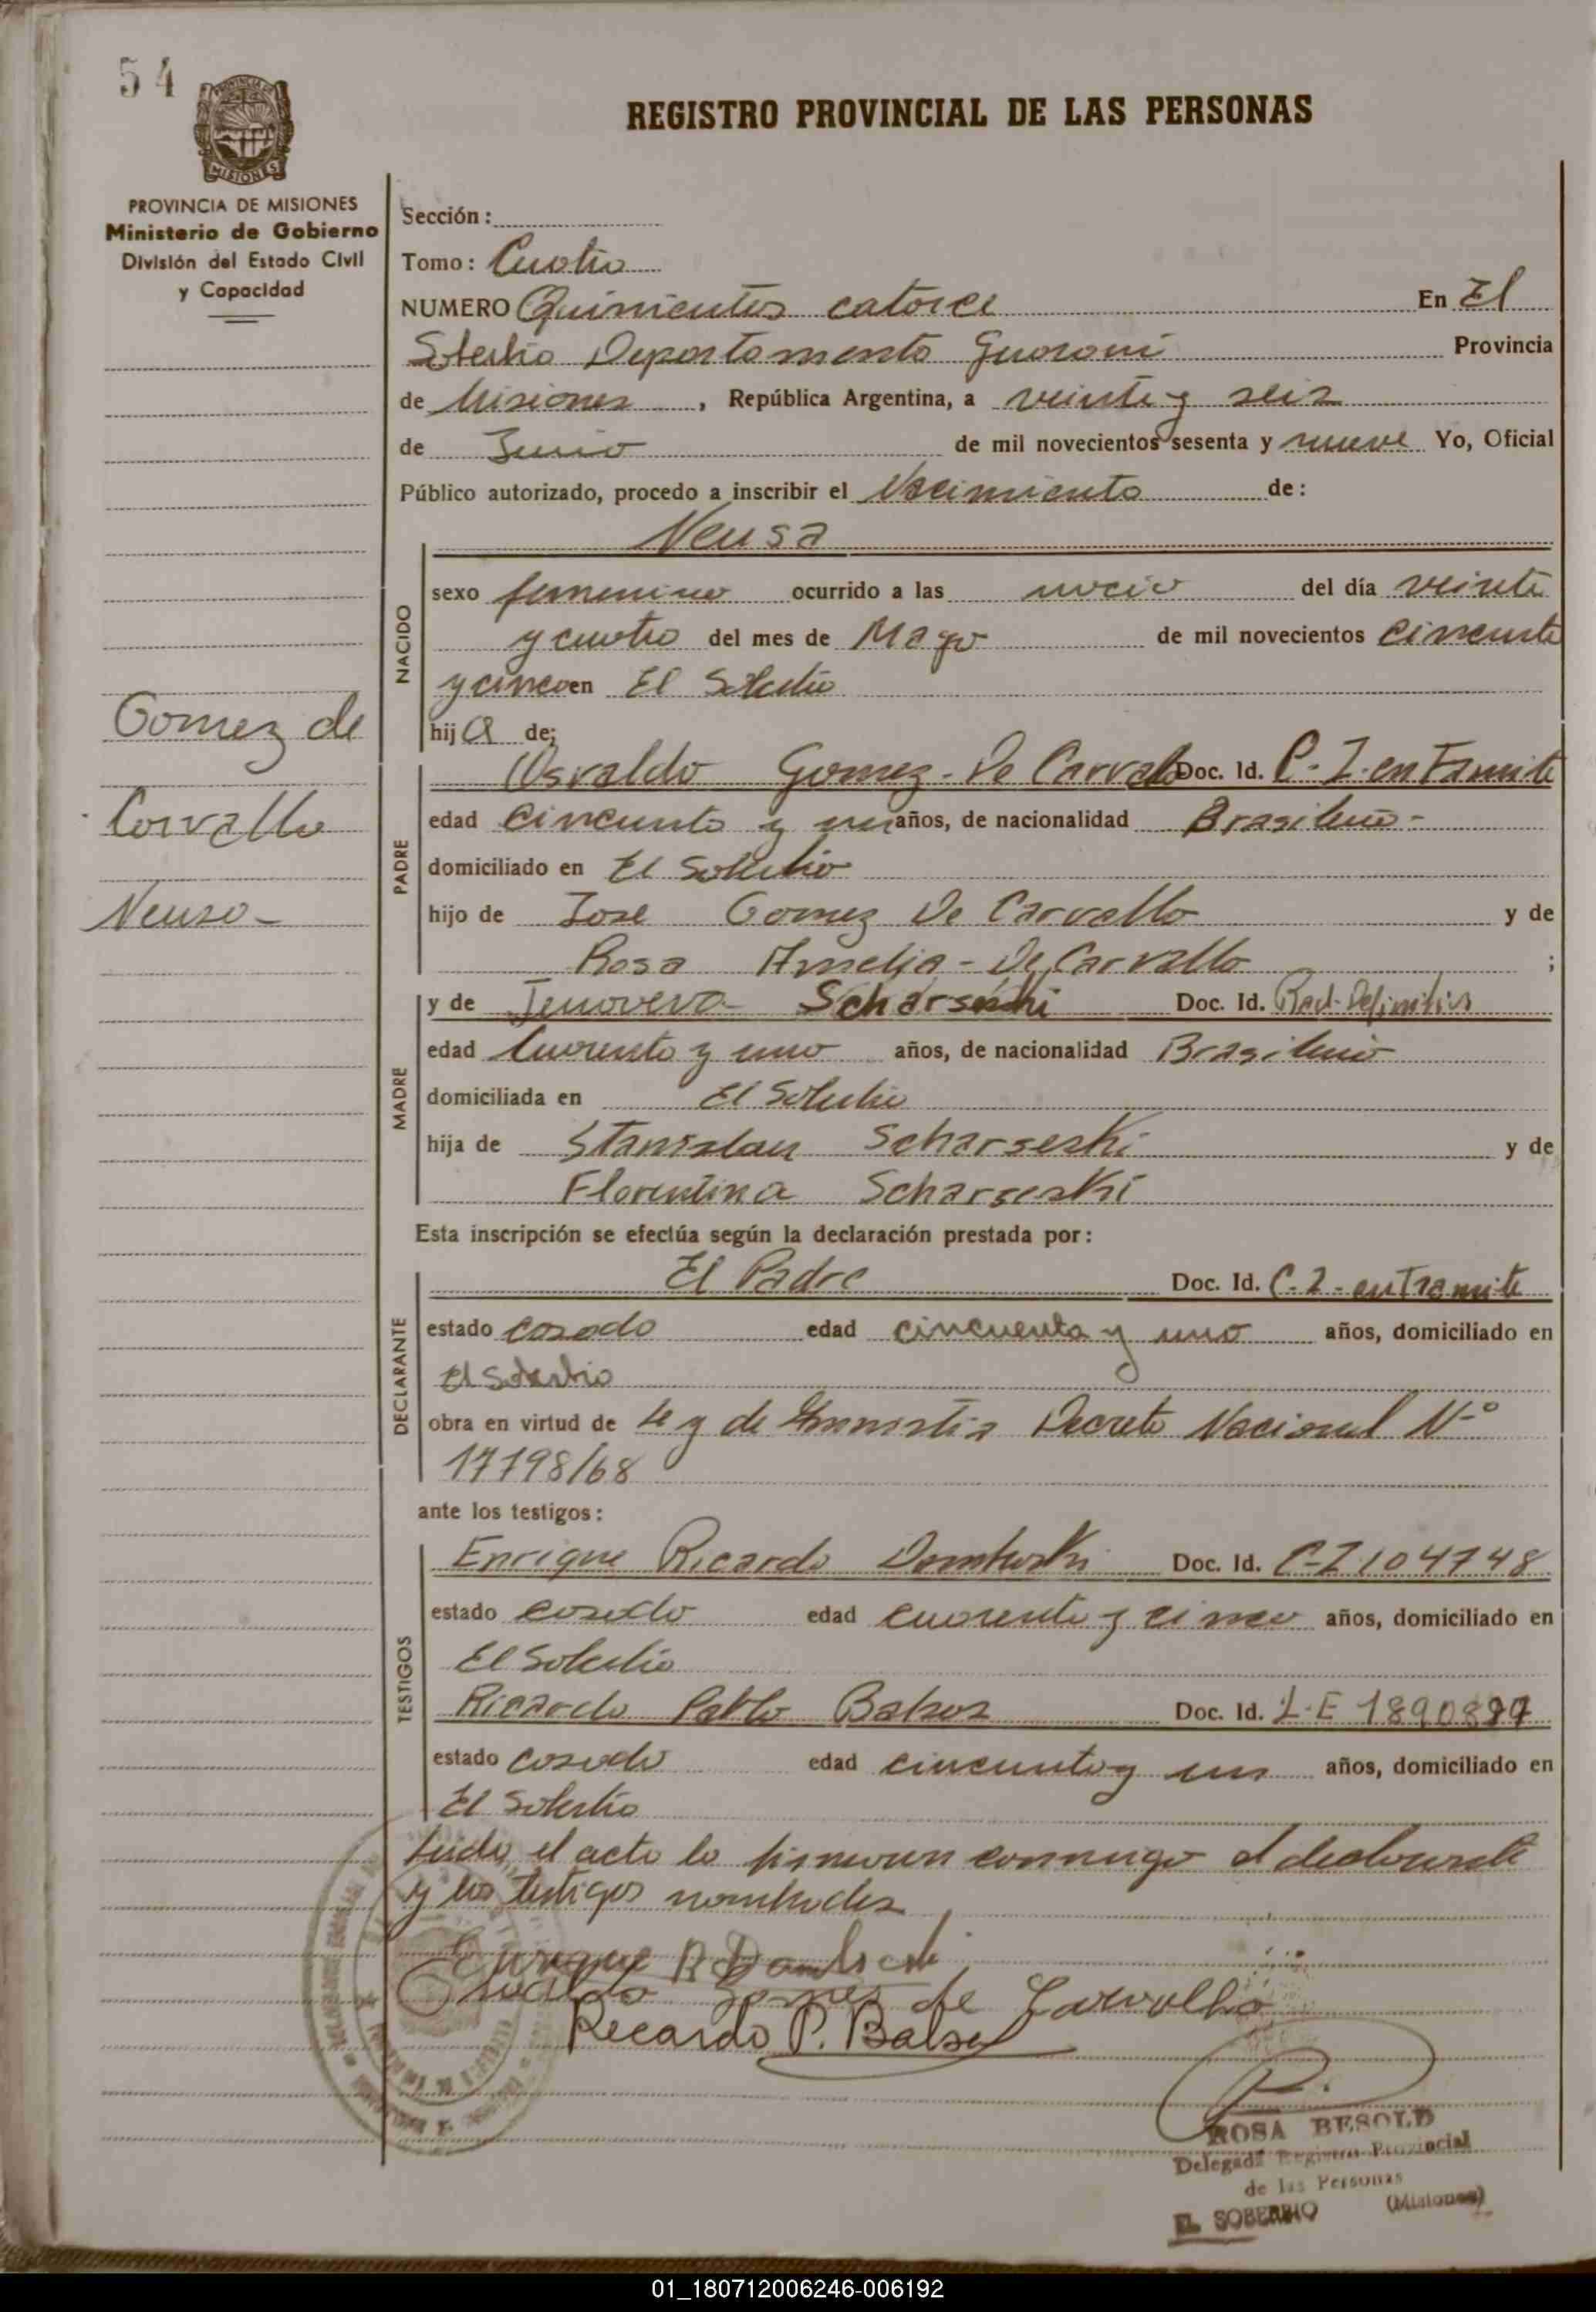 54
REGISTRO PROVINCIAL DE LAS PERSONAS
PROVINCIA DE MISIONES
Ministerio de Gobierno
División del Estado Civil
y Capacidad
Sección:
Tomo: Cuatro
NUMERO Quinientos catorce En El
Soberbio Departamento Guarani Provincia
de Misiones, República Argentina, a veinte y seis
de Junio de mil novecientos sesenta y nueve Yo, Oficial
Público autorizado, procedo a inscribir el Nacimiento de:
Neusa
NACIDO
sexo femenino ocurrido a las del día veinte
y cuatro del mes de Mayo de mil novecientos cincuenta
y cinco en El Soberbio
hija de;
Gomez de
Carvallo
Neusa-
PADRE
Osvaldo Gomez - De Carvallo Doc. Id. C-I- en Tramite
edad cincuenta y un años, de nacionalidad Brasileño-
domiciliado en El Soberbio
hijo de Jose Gomez De Carvallo y de
Rosa Amelia - De Carvallo ;
MADRE
y de Jenoveva Scharseski Doc. Id. Rad-Definitiva
edad Cuarenta y uno años, de nacionalidad Brasileña
domiciliada en El Soberbio
hija de Stanislau Scharseski y de
Florentina Scharseski
Esta inscripción se efectúa según la declaración prestada por:
DECLARANTE
El Padre Doc. Id. C-I- en Tramite
estado casado edad cincuenta y uno años, domiciliado en
El Soberbio
obra en virtud de Ley de Amnistia Decreto Nacional N-°
17798/68
ante los testigos:
TESTIGOS
Enrique Ricardo Doc. Id. C-I 104748
estado casado edad cuarenta y cinco años, domiciliado en
El Soberbio
Ricardo Pablo Balsor Doc. Id. L-E
estado casado edad cincuenta y un años, domiciliado en
El Soberbio
Leida el acta la firmaron conmigo el declarante
y los testigos nombrados
Enrique R
Osvaldo Gomes de Carvalho
Ricardo P.
ROSA BESOLD
Delegada Registro Provincial
de las Personas
EL SOBERBIO (Misiones)
01_180712006246-006192